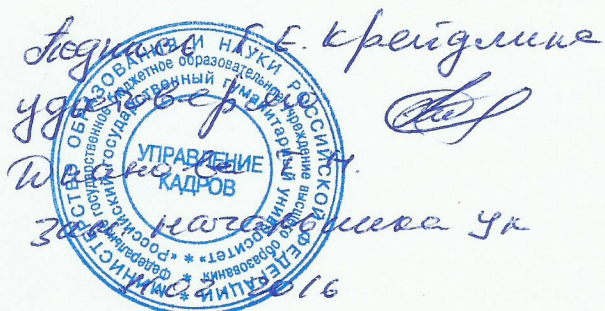 Подпись Г.Е. Крейдлина
удостоверяю
Н.
зам. начальника УК
11.02.2016
МИНИСТЕРСТВО ОБРАЗОВАНИЯ И НАУКИ РОССИЙСКОЙ ФЕДЕРАЦИИ *
Федеральное государственное бюджетное образовательное учреждение высшего образования *
«Российский государственный гуманитарный университет» *
УПРАВЛЕНИЕ
КАДРОВ